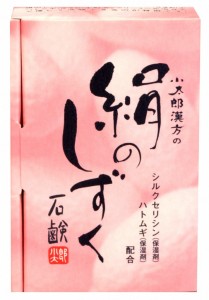 小太郎漢方の
絹のしずく
石鹸
シルクセリシン(保湿剤)
ハトムギ(保湿剤)
配合